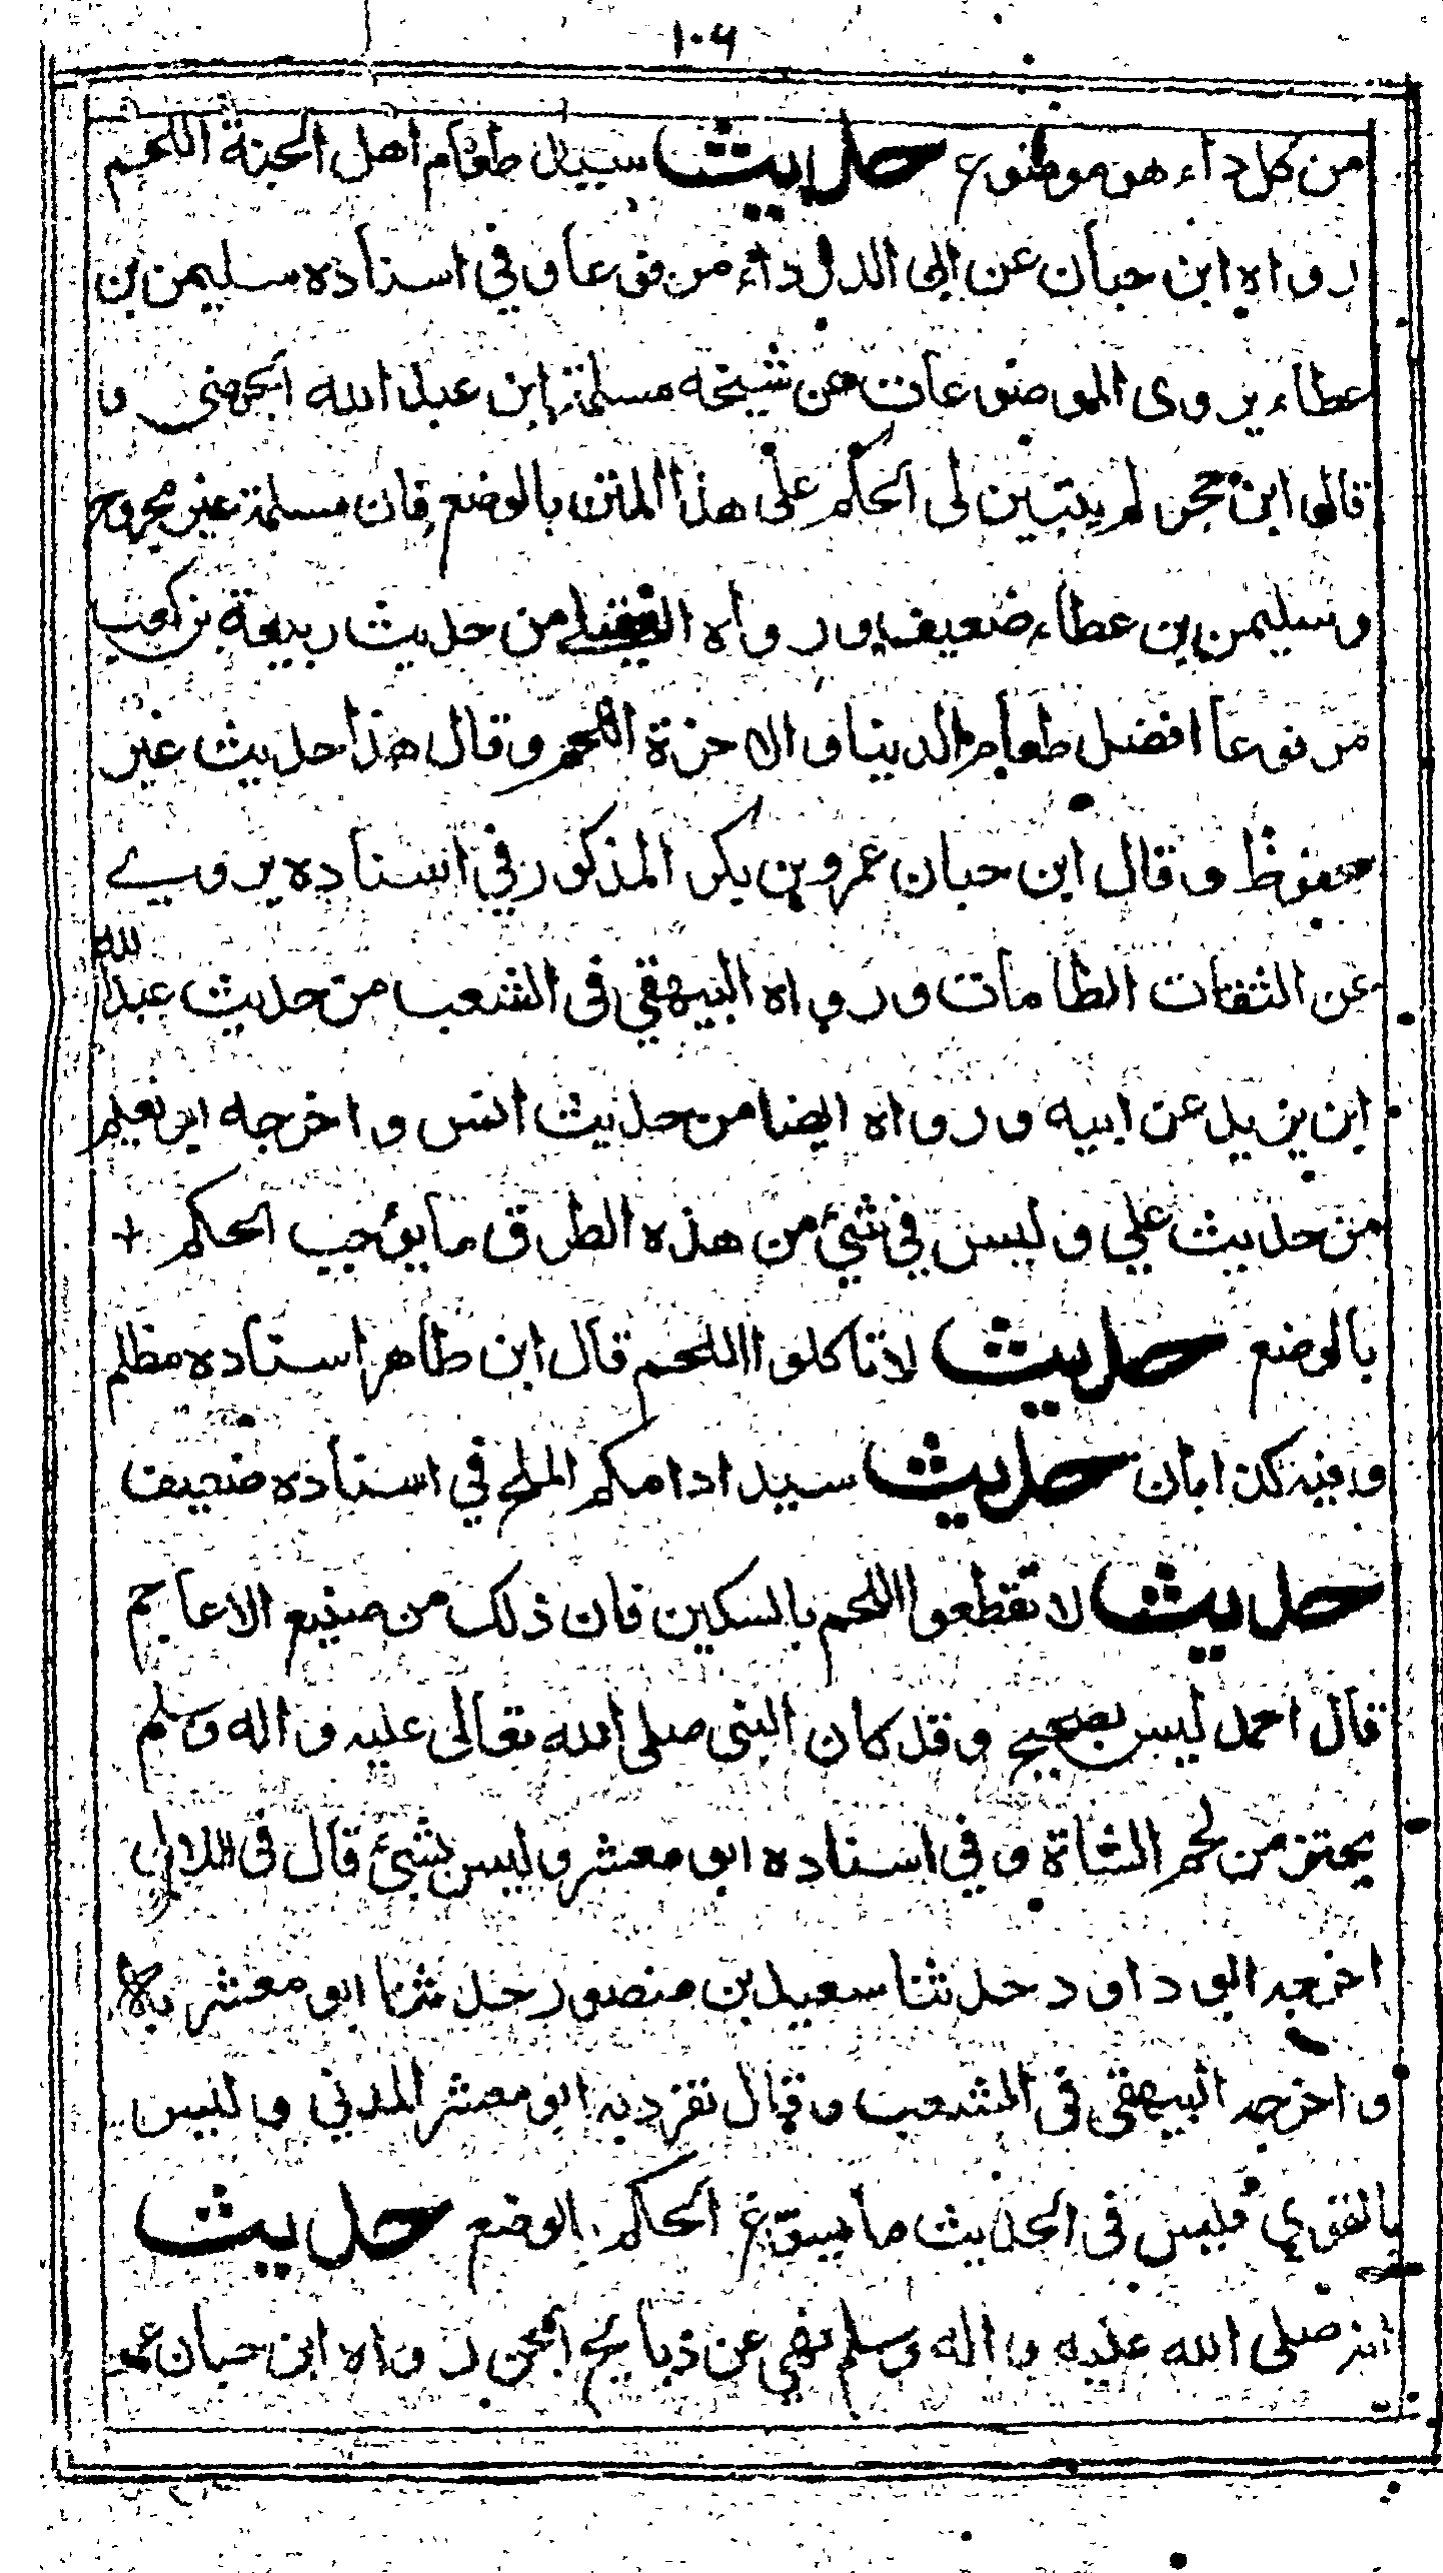 ١٠٦
من كل داء هو موضوع حديث سيد طعام اهل الجنة اللحم
رواه ابن حبان عن ابي الدرداء مرفوعا وفي اسناده سليمن بن
عطاء يروى الموضوعات عن شيخه مسلمة ابن عبد الله الجهني و
قال ابن حجر لم يتبين لى الحكم على هذا المتن بالوضع فان مسلمة غير مجروح
وسليمن بن عطاء ضعيف ورواه العقيلي من حديث ربيعة بن كعب
مرفوعا افضل طعام الدنيا والاخرة اللحم وقال هذا حديث غير
محفوظ وقال ابن حبان عمرو بن بكر المذكور في اسناده يروے
عن الثقات الطامات ورواه البيهقي فى الشعب من حديث عبد الله
ابن يزيد عن ابيه ورواه ايضا من حديث انس واخرجه ابو نعيم
من حديث علي وليس في شئ من هذه الطرق ما يوجب الحكم +
بالوضع حديث لا تاكلوا اللحم قال ابن طاهر اسناده مظلم
وفيه كذابان حديث سيد ادامكم الملح في اسناده ضعيف
حديث لا تقطعوا اللحم بالسكين فان ذلك من صنيع الاعاجم
قال احمد ليس بصحيح وقد كان النبى صلى الله تعالى عليه واله وسلم
يحتز من لحم الشاة وفي اسناده ابو معشر وليس بشئ قال فى اللالى
اخرجه ابو داود حدثنا سعيد بن منصور حدثنا ابو معشر به
واخرجه البيهقى فى الشعب وقال تفرد به ابو معشر المدني وليس
بالقوي فليس فى الحديث ما يسوغ الحكم بالوضع حديث
انه صلى الله عليه واله وسلم نهي عن ذبايح الجن رواه ابن حبان عن